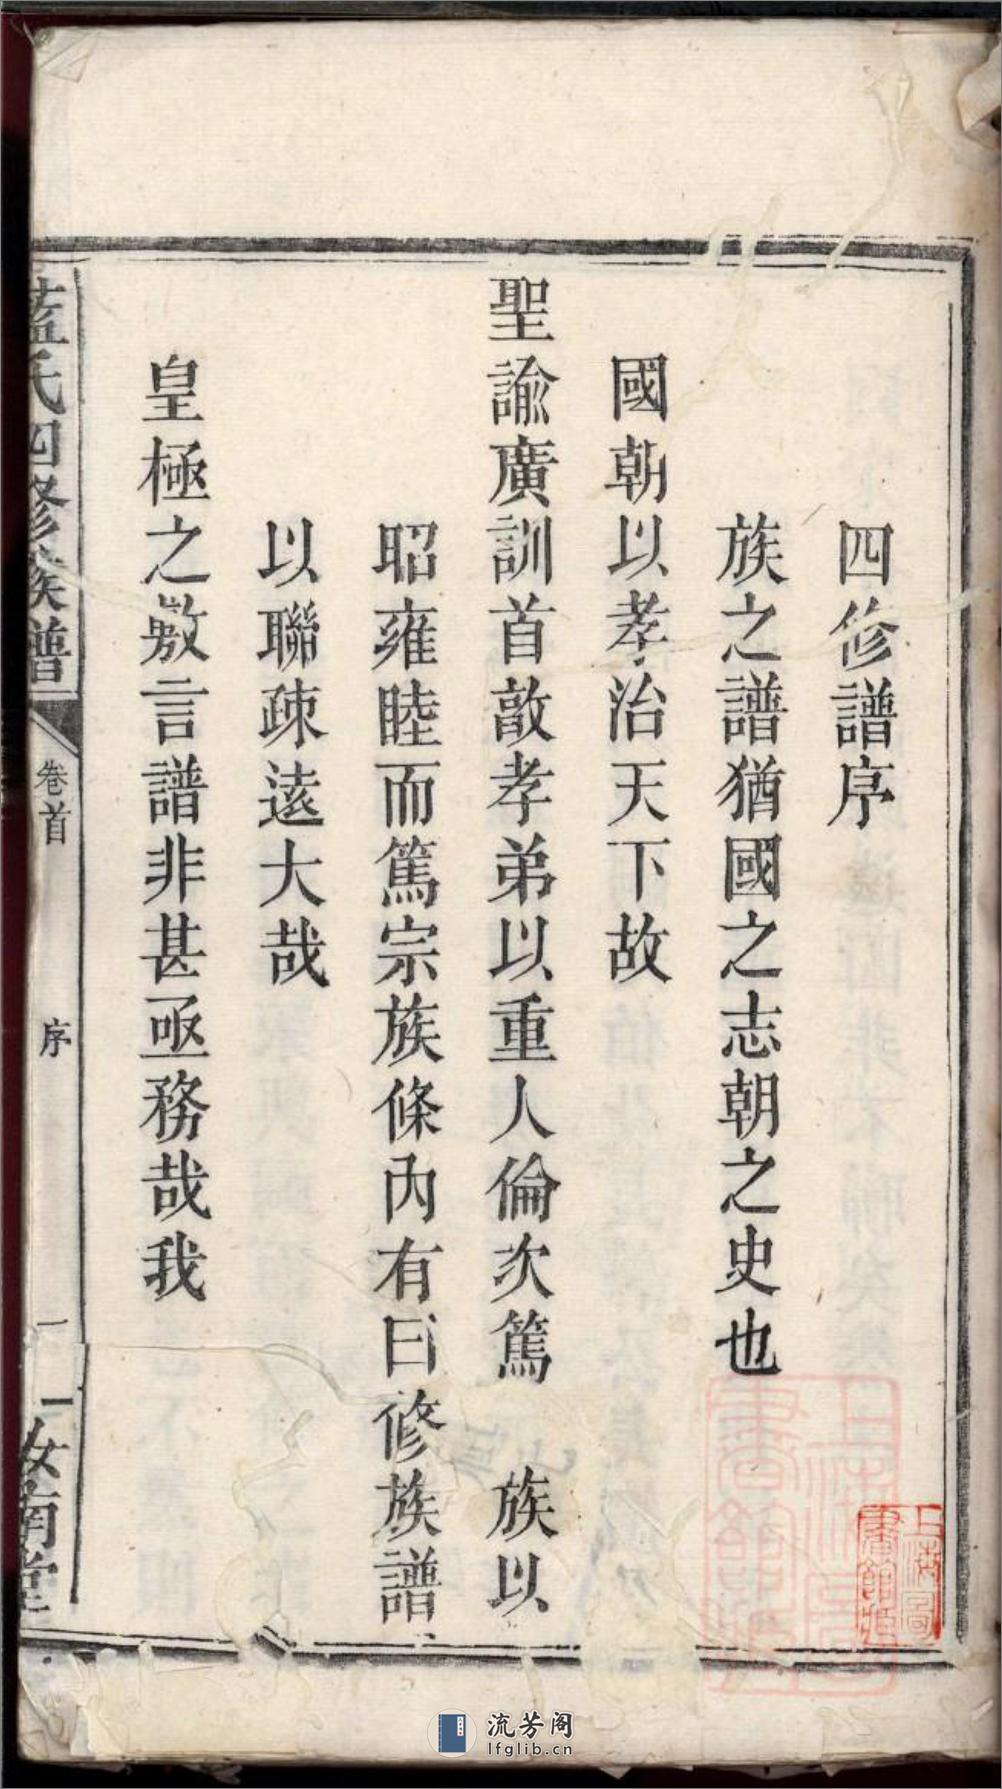 四修譜序
族之譜猶國之志朝之史也
國朝以孝治天下故
聖諭廣訓首敦孝弟以重人倫次篤　族以
昭雍睦而篤宗族條內有曰修族譜
以聯疎遠大哉
皇極之敷言譜非甚亟務哉我
藍氏四修族譜
卷首
序
一
汝南堂
上海圖書館藏
流芳阁
lfglib.cn